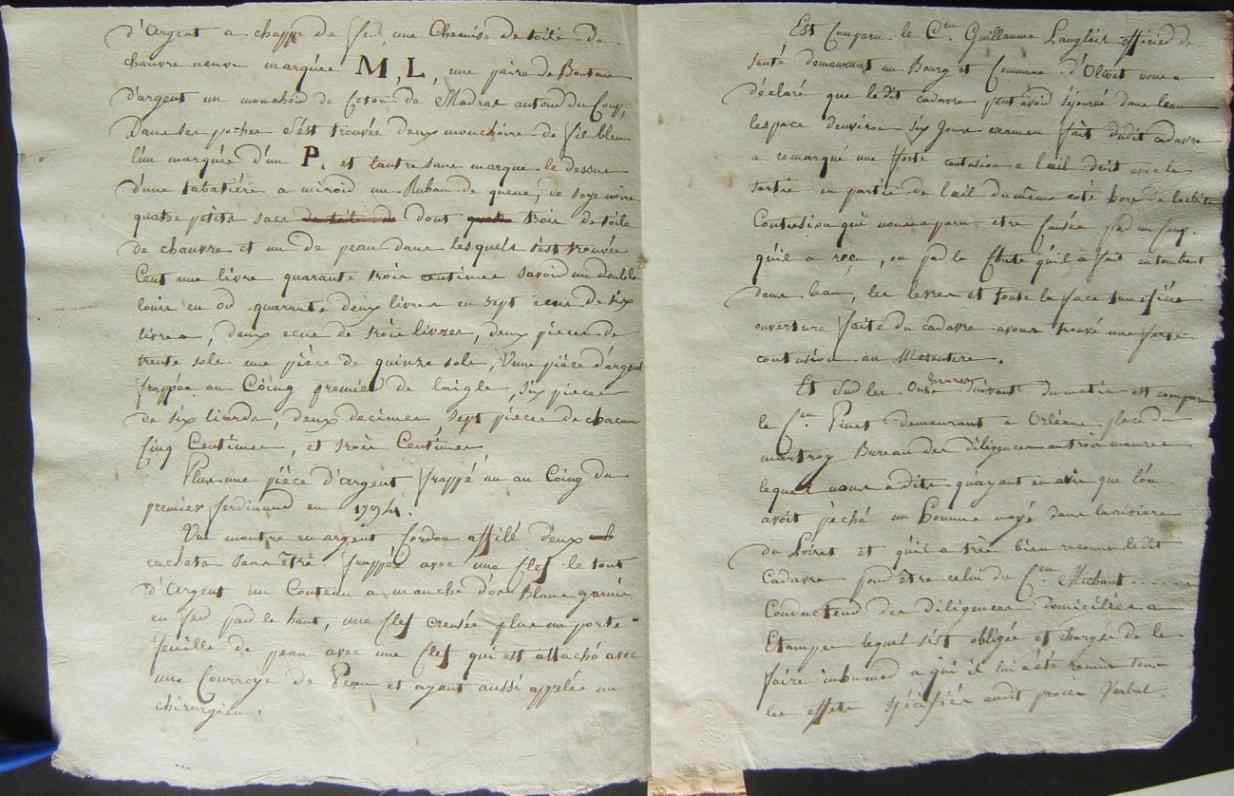 d'argent a chappe de fer, une Chemise de toile de
chanvre neuve marquée M, L, une paire de Boutons
d'argent un mouchoir de Coton de Madras autour du Coup,
Dans ses poches s'est trouvée deux mouchoirs de fil bleu
l'un marquée d'un P. et l'autre sans marque le dessus
d'une tabatière a miroir un Ruban de queue, de soye noire
quatre petits sacs de toile de dont quatre trois de toile
de chanvre et un de peau dans lesquels s'est trouvée
Cent une livre quarante trois centimes savoir un double
louis en or quarante deux livres en sept ecus de six
livres, deux ecus de trois livres, deux pieces de
trente sols une pièce de quinze sols, d'une pièce d'argent
frappée au Coing premier de l'aigle, six pieces
de six liards, deux decimes, sept pieces de chacun
Cinq Centimes, et trois Centimes
Plus une pièce d'argent frappé au Coing du
premier ferdinand en 1794.
Une montre en argent Cordon assillé deux
cachets sans être frappés avec une clef le tout
d'Argent un Couteau a manche d'os Blanc garni
en fer par le haut, une clef creusée plus un porte-
feuille de peau avec une clef qui est attaché avec
une Courroye de Peau et ayant aussi appelée un
chirurgien.
Est Comparu le Cen. Guillaume Langlois officier de
santé demeurant au Bourg et Commune d'Olivet nous a
déclaré que le dit cadavre peut avoir séjourné dans l'eau
l'espace d'environ six jours examen fait dudit cadavre
a remarqué une forte contusion a l'œil droit avec la
sortie en partie de l'œil du même coté hors de l'orbite
Contusion qui nous a paru etre causée par un coup
qu'il a reçu, ou par la Chute qu'il a fait en tombant
dans l'eau, les levres et toute la face tumefiée
ouverture faite du cadavre avons trouvé une forte
contusion au Mesentere.
Et sur les Onze heures suivant du matin est comparu
le Cen. Pinet demeurant a Orléans place du
martroy Bureau des diligences aux trois maures
lequel nous a dit qu'ayant eu avis que l'on
avoit pêché un homme noyé dans la riviere
du Loiret et qu'il a très bien reconnu ledit
Cadavre pour être celui du Cen. Michaut
Conducteur des diligences domiciliée a
Etampes lequel s'est obligée et chargée de le
faire inhumer a qui il lui a été remis tous
les effets spécifiées audit procès Verbal.